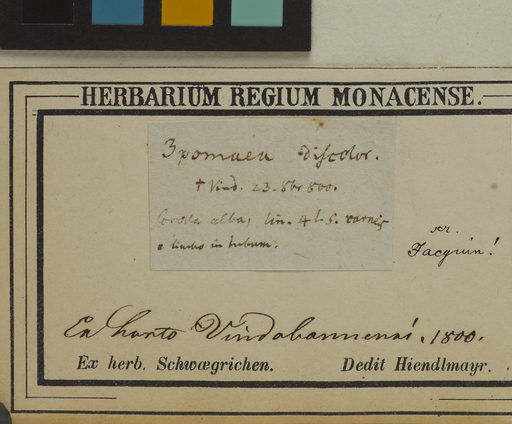 HERBARIUM REGIUM MONACENSE.
Ipomaea discolor.
† Vind. 23. 8br 800.
Corolla alba, lin. 4 l. 5.
e limbo in tubum.
scr.
Jacquin!
Ex horto Vindobonnensi. 1800.
Ex herb. Schwægrichen. Dedit Hiendlmayr.